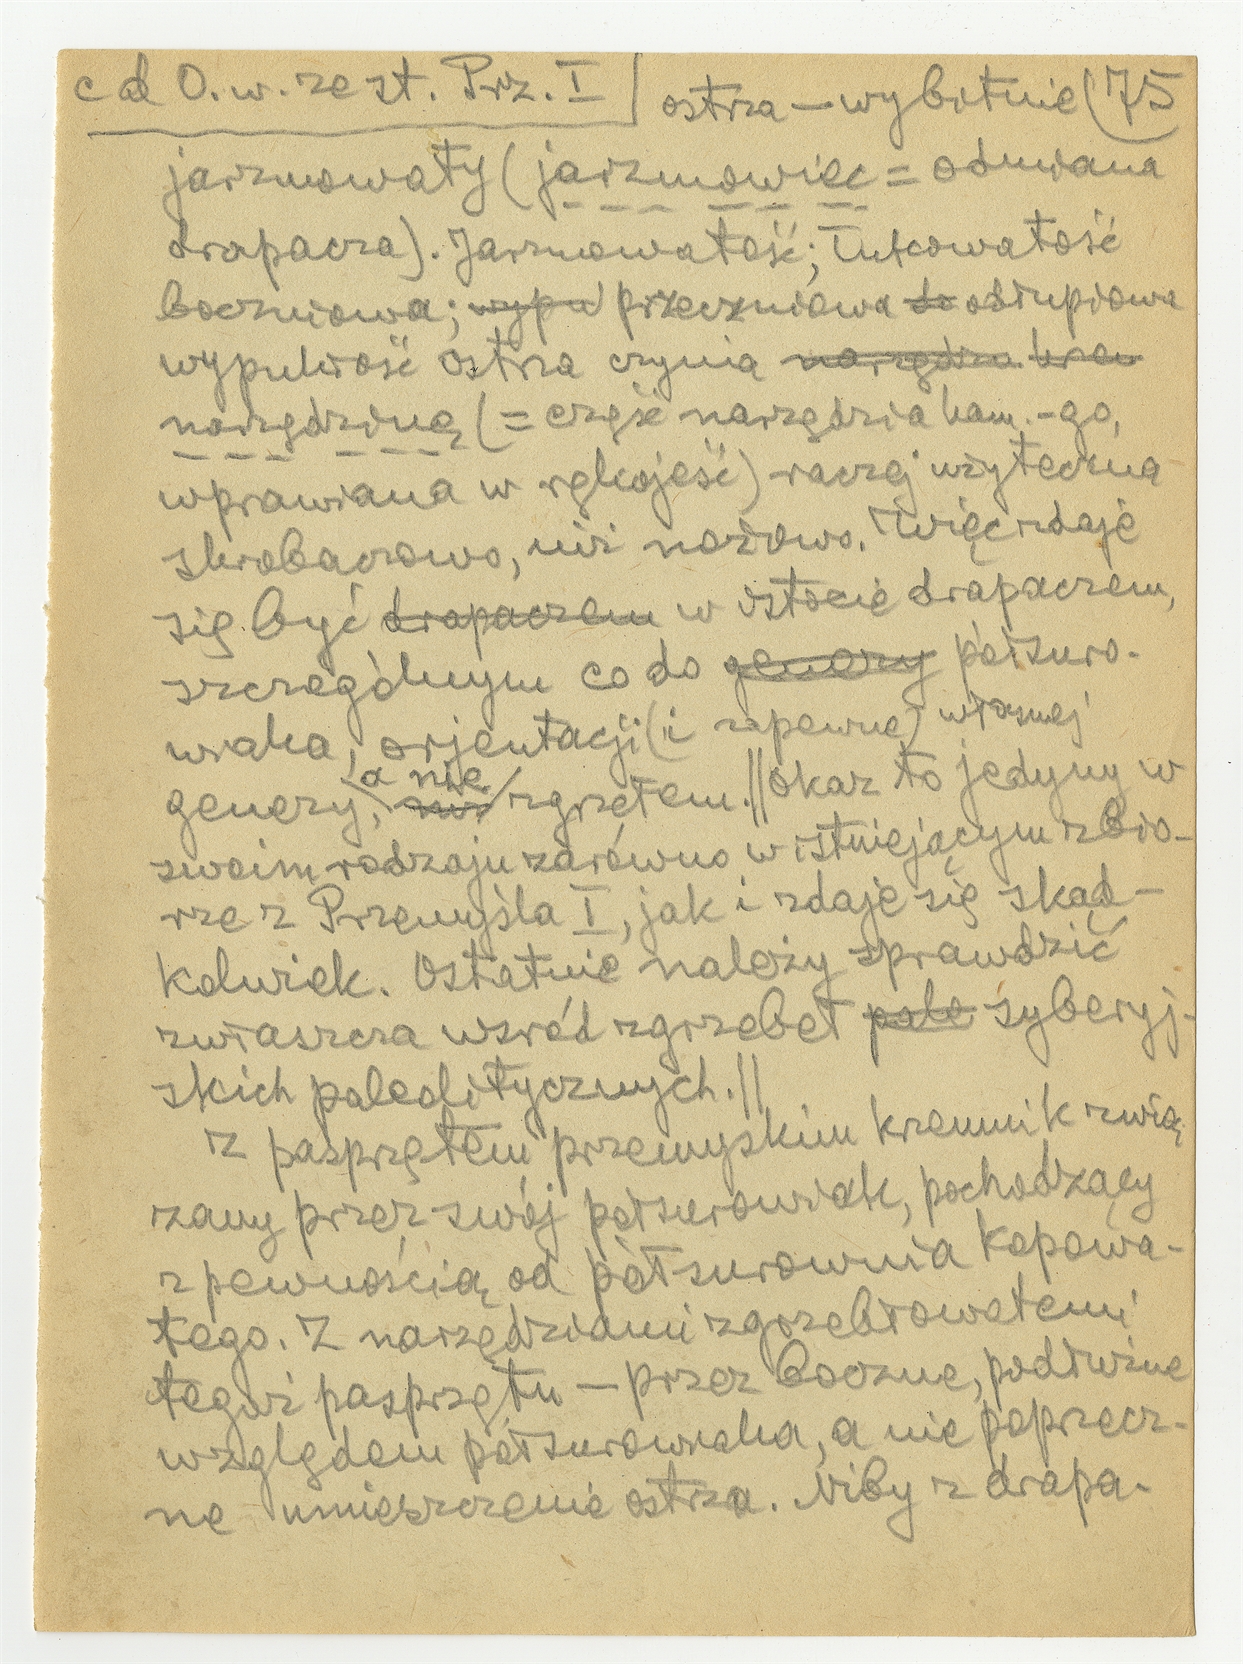 cd O.w. zest. Prz. I ostrza — wybitnie (75
jarzmowaty (jarzmowiec = odmiana
drapacza). Jarzmowatość; łukowatość
boczniowa; wypu przeczniowa do odłupiowa
wypukłość ostrza czynią narzędzia kra
narzędzinę (= część narzędzia kam.-go,
wprawiana w rękojeść) raczej użyteczną
skrobaczowo, niż nożowo. Więc zdaje
się być drapaczem w istocie drapaczem,
szczególnym co do genezy półsuro-
wiaka, orjentacji (i zapewne) własnej
genezy, niż a nie zgrzełem. || Okaz to jedyny w
swoim rodzaju zarówno w istniejącym zbio-
rze z Przemyśla I, jak i zdaje się skąd-
kolwiek. Ostatnie należy sprawdzić
zwłaszcza wśród zgrzebeł pale syberyj-
skich paleolitycznych. ||
Z pasprzętem przemyskim krzemnik zwią
zany przez swój półsurowiak, pochodzący
z pewnością od półsurownia kopowa-
tego. Z narzędziami zgrzebłowatemi
tegoż pasprzętu — przez boczne, podłużne
względem półsurowiaka, a nie poprzecz-
ne umieszczenie ostrza. Niby z drapa-